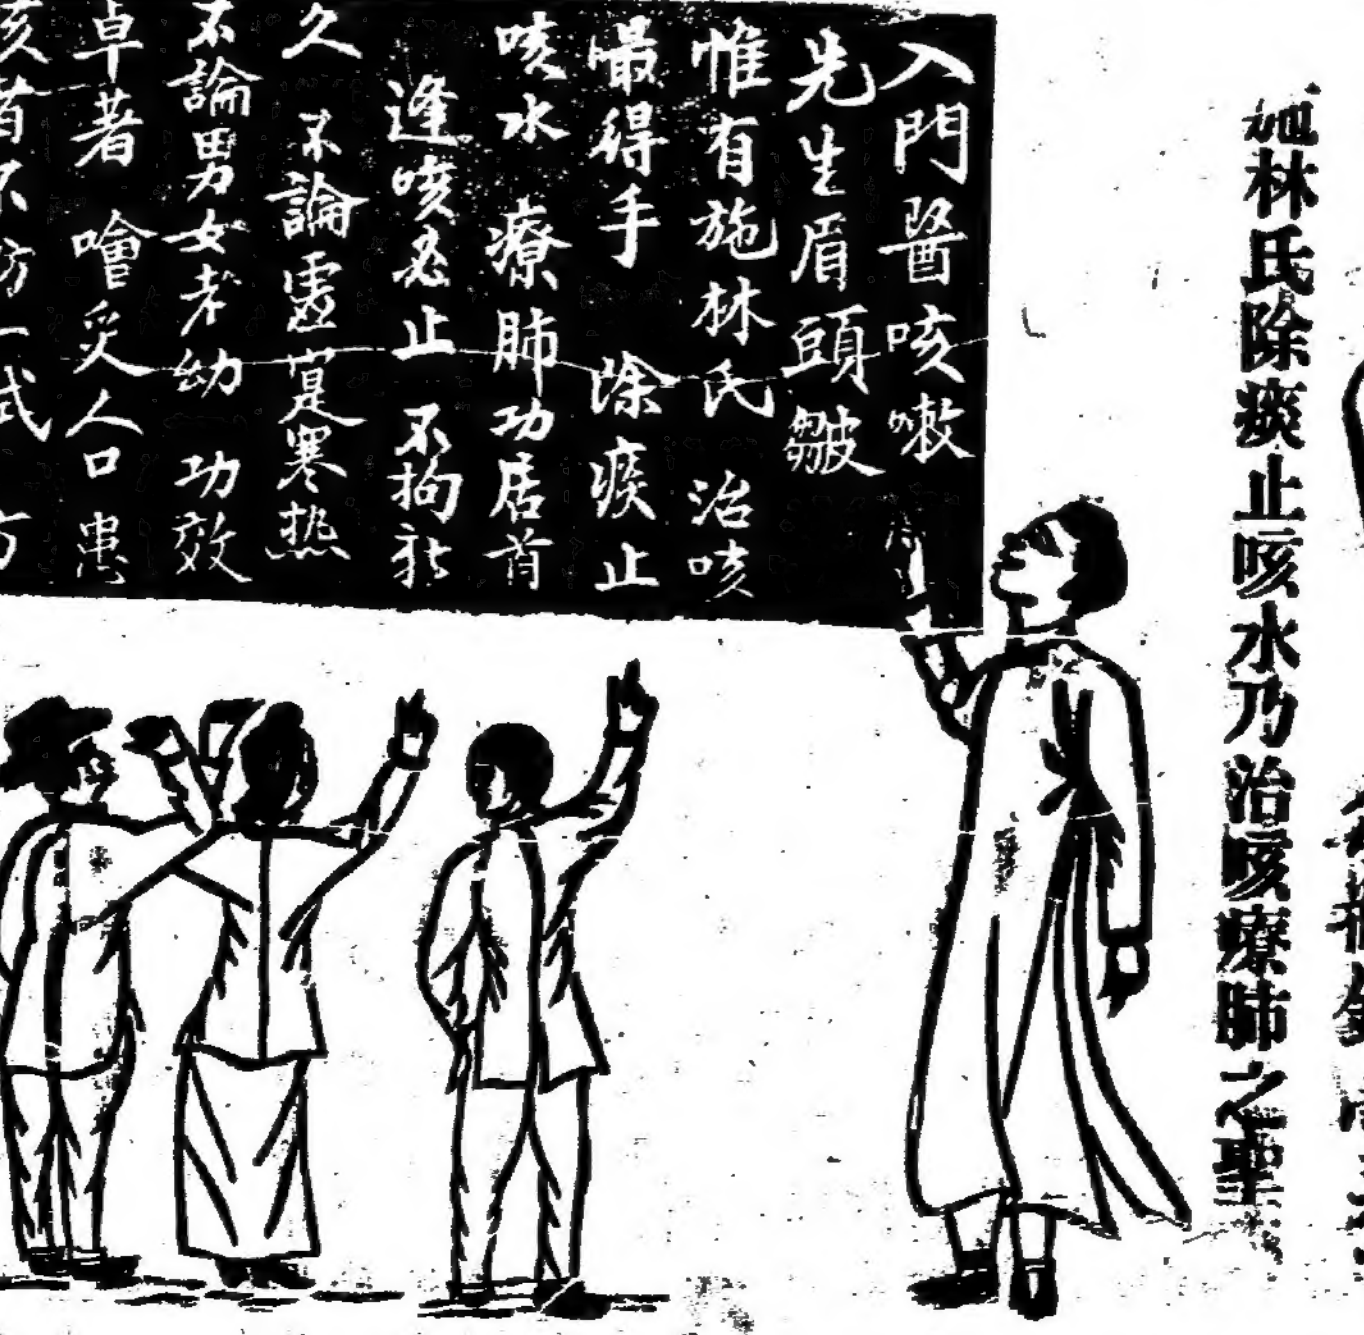 施林氏除痰止咳水乃治咳療肺之聖
入門醫咳嗽
先生眉頭皺
惟有施林氏 治咳
最得手 除痰止
咳水 療肺功居首
逢咳必止 不拘新
久 不論虛實寒熱
不論男女老幼 功效
卓著 噲炙人口 患
咳者不妨一試 方